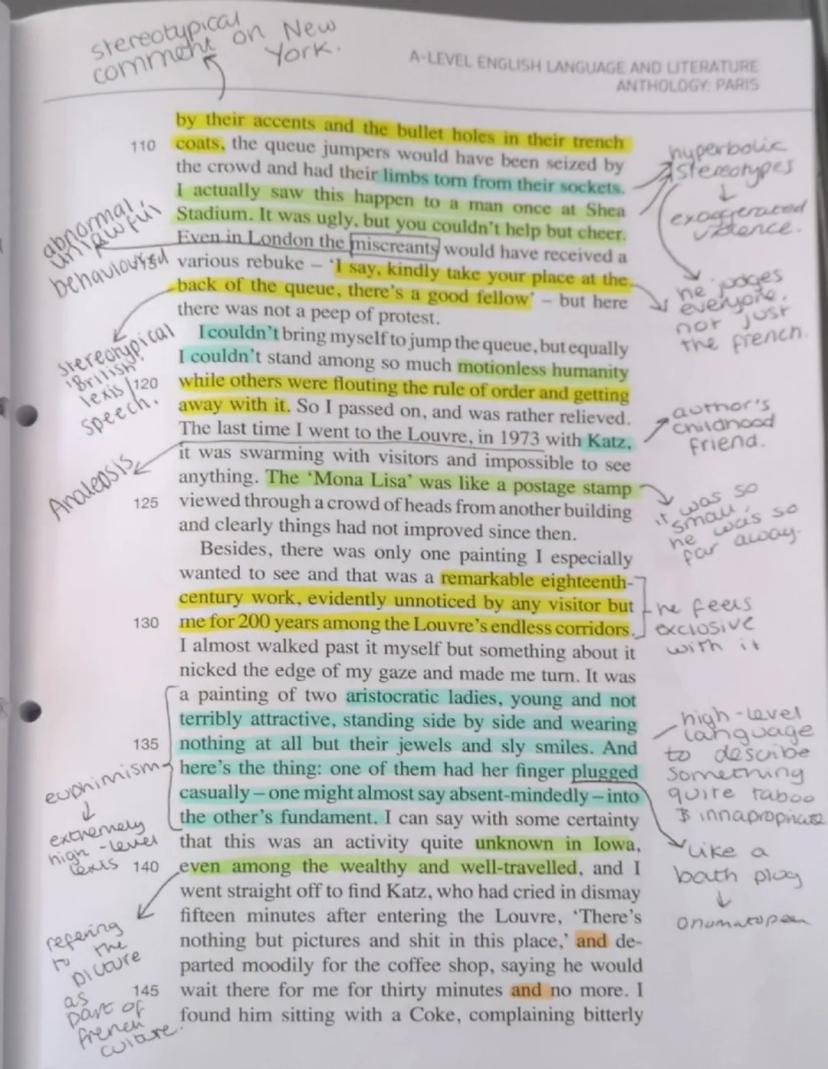 stereotypical
comment on New
York.
A-LEVEL ENGLISH LANGUAGE AND LITERATURE
ANTHOLOGY: PARIS
by their accents and the bullet holes in their trench
110 coats, the queue jumpers would have been seized by
the crowd and had their limbs torn from their sockets.
I actually saw this happen to a man once at Shea
Stadium. It was ugly, but you couldn't help but cheer.
Even in London the miscreants would have received a
various rebuke – 'I say, kindly take your place at the
back of the queue, there's a good fellow' – but here
there was not a peep of protest.
I couldn't bring myself to jump the queue, but equally
I couldn't stand among so much motionless humanity
120 while others were flouting the rule of order and getting
away with it. So I passed on, and was rather relieved.
The last time I went to the Louvre, in 1973 with Katz,
it was swarming with visitors and impossible to see
anything. The 'Mona Lisa' was like a postage stamp
125 viewed through a crowd of heads from another building
and clearly things had not improved since then.
Besides, there was only one painting I especially
wanted to see and that was a remarkable eighteenth-
century work, evidently unnoticed by any visitor but
130 me for 200 years among the Louvre's endless corridors.
I almost walked past it myself but something about it
nicked the edge of my gaze and made me turn. It was
a painting of two aristocratic ladies, young and not
terribly attractive, standing side by side and wearing
135 nothing at all but their jewels and sly smiles. And
here's the thing: one of them had her finger plugged
casually – one might almost say absent-mindedly – into
the other's fundament. I can say with some certainty
that this was an activity quite unknown in Iowa,
140 even among the wealthy and well-travelled, and I
went straight off to find Katz, who had cried in dismay
fifteen minutes after entering the Louvre, 'There's
nothing but pictures and shit in this place,' and de-
parted moodily for the coffee shop, saying he would
145 wait there for me for thirty minutes and no more. I
found him sitting with a Coke, complaining bitterly
abnormal,
unlawful
behaviour
stereotypical
'British'
lexis/
speech.
Analepsis
euphimism
extremely
high-level
lexis
refering
to the
picture
as
part of
french
culture.
hyperbolic
stereotypes
exaggerated
violence.
he judges
everyone,
not just
the french.
author's
childhood
friend.
it was so
small,
he was so
far away.
he feels
exclusive
with it
high-level
language
to describe
something
quite taboo
& innapropriate
like a
bath plug
onomatopoea